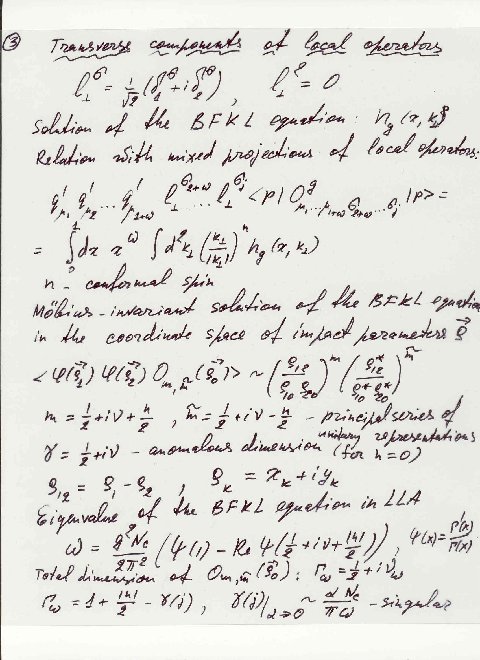 ③ Transverse components of local operators
l_⊥^σ = 1/√2 (δ_1^σ + i δ_2^σ) , l_⊥^2 = 0
Solution of the BFKL equation: n_g (x, k_⊥)
Relation with mixed projections of local operators:
q'_{μ_1} q'_{μ_2} ... q'_{μ_{1+ω}} l_⊥^{σ_{2+ω}} ... l_⊥^{σ_j} <p| O^g_{μ_1...μ_{1+ω} σ_{2+ω}...σ_j} |p> =
= ∫_0^1 dx x^ω ∫ d^2k_⊥ (k_⊥/|k_⊥|)^n n_g (x, k_⊥)
n - conformal spin
Möbius-invariant solution of the BFKL equation
in the coordinate space of impact parameters ρ⃗
<φ(ρ⃗_1) φ(ρ⃗_2) O_{m, m̃} (ρ⃗_0)> ~ (ρ_{12}/ρ_{10} ρ_{20})^m (ρ*_{12}/ρ*_{10} ρ*_{20})^{m̃}
m = 1/2 + iν + n/2 , m̃ = 1/2 + iν - n/2 - principal series of
unitary representations
γ = 1/2 + iν - anomalous dimension (for n=0)
ρ_{12} = ρ_1 - ρ_2 , ρ_k = x_k + i y_k
Eigenvalue of the BFKL equation in LLA
ω = g^2 N_c/2π^2 (ψ(1) - Re ψ(1/2 + iν + |n|/2)) , ψ(x) = Γ'(x)/Γ(x)
Total dimension of O_{m, m̃} (ρ⃗_0): Γ_ω = 1/2 + iν_ω
Γ_ω = 1 + |n|/2 - γ(j) , γ(j)|_{α→0} ~ α N_c/πω - singular